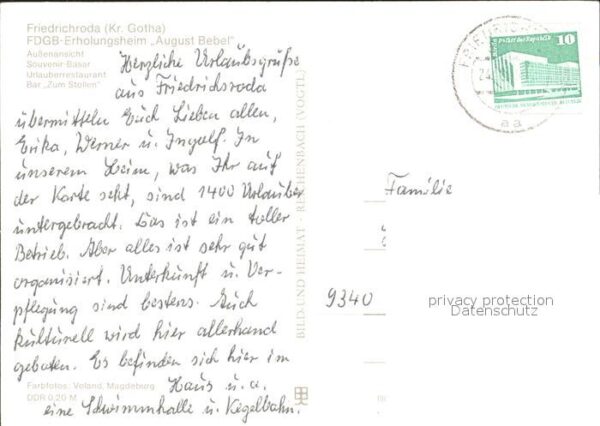 Friedrichroda (Kr. Gotha)
FDGB-Erholungsheim „August Bebel"
Außenansicht
Souvenir-Basar
Urlauberrestaurant
Bar „Zum Stollen"
Herzliche Urlaubsgrüße
aus Friedrichsroda
übermitteln Euch Lieben allen,
Erika, Werner u. Ingolf. In
unserem Heim, was Ihr auf
der Karte seht, sind 1400 Urlauber
untergebracht. Das ist ein toller
Betrieb. Aber alles ist sehr gut
organisiert. Unterkunft u. Ver-
pflegung sind bestens. Auch
kulturell wird hier allerhand
geboten. Es befinden sich hier im
Haus u. a.
eine Schwimmhalle u. Kegelbahn.
Farbfotos: Voland, Magdeburg
DDR 0,20 M
BILD UND HEIMAT · REICHENBACH (VOGTL)
10
aa
Familie
9340
privacy protection
Datenschutz